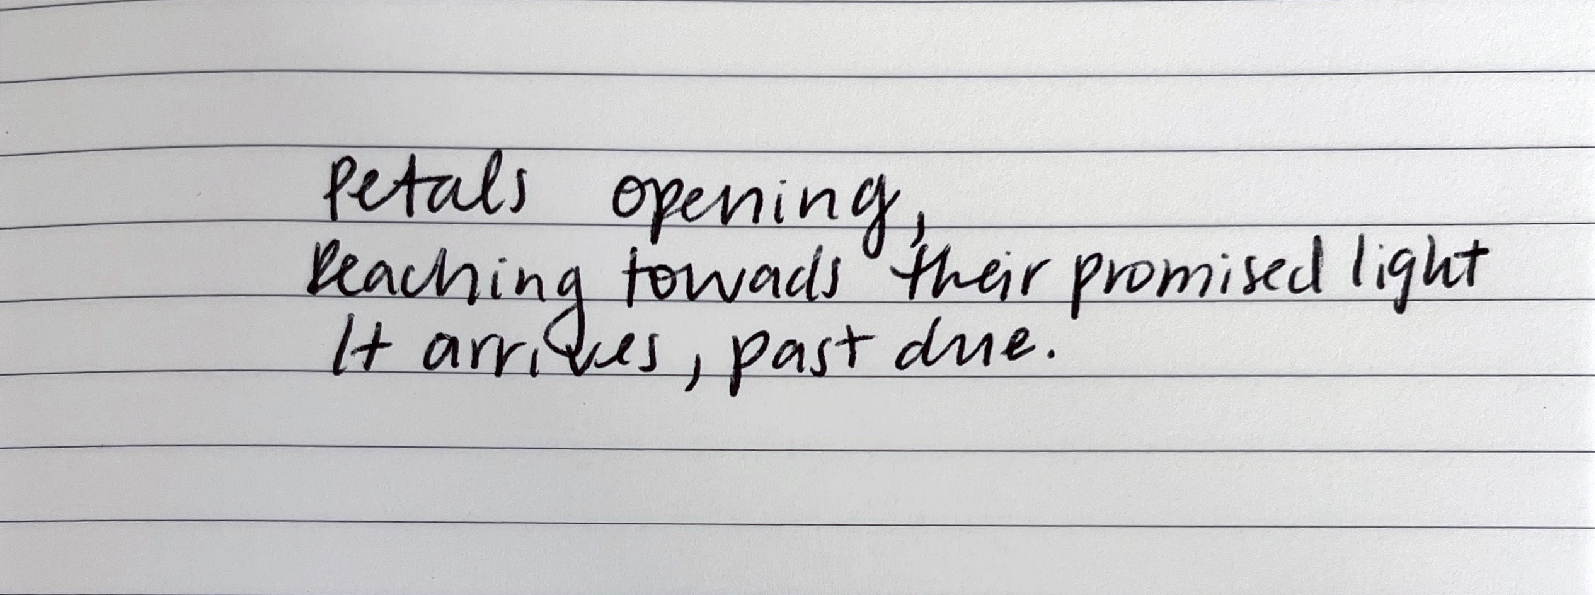 Petals opening,
Reaching towads their promised light
It arrives, past due.